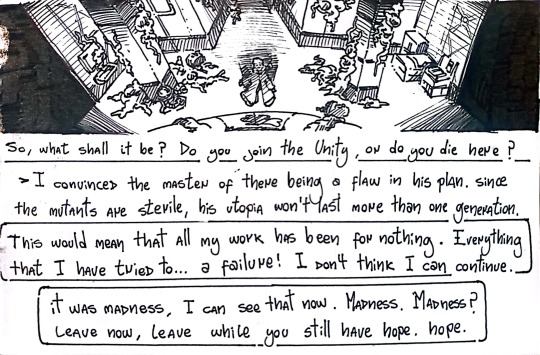 So, what shall it be? Do you join the Unity, or do you die here?
> I convinced the master of there being a flaw in his plan. since
the mutants are sterile, his utopia won't last more than one generation.
This would mean that all my work has been for nothing. Everything
that I have tried to... a failure! I don't think I can continue.
it was madness, I can see that now. Madness. Madness?
Leave now, leave while you still have hope. hope.